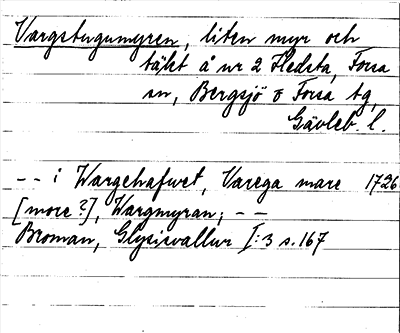 Vargstugumyren, liten myr och
täkt å nr 2 Hedsta, Forsa
sn, Bergsjö o Forsa tg,
Gävleb. l.
-- i Wargehafwet, Varega mare 1726
[more?], Wargmyran; --
Broman, Glysisvallur I:3 s. 167